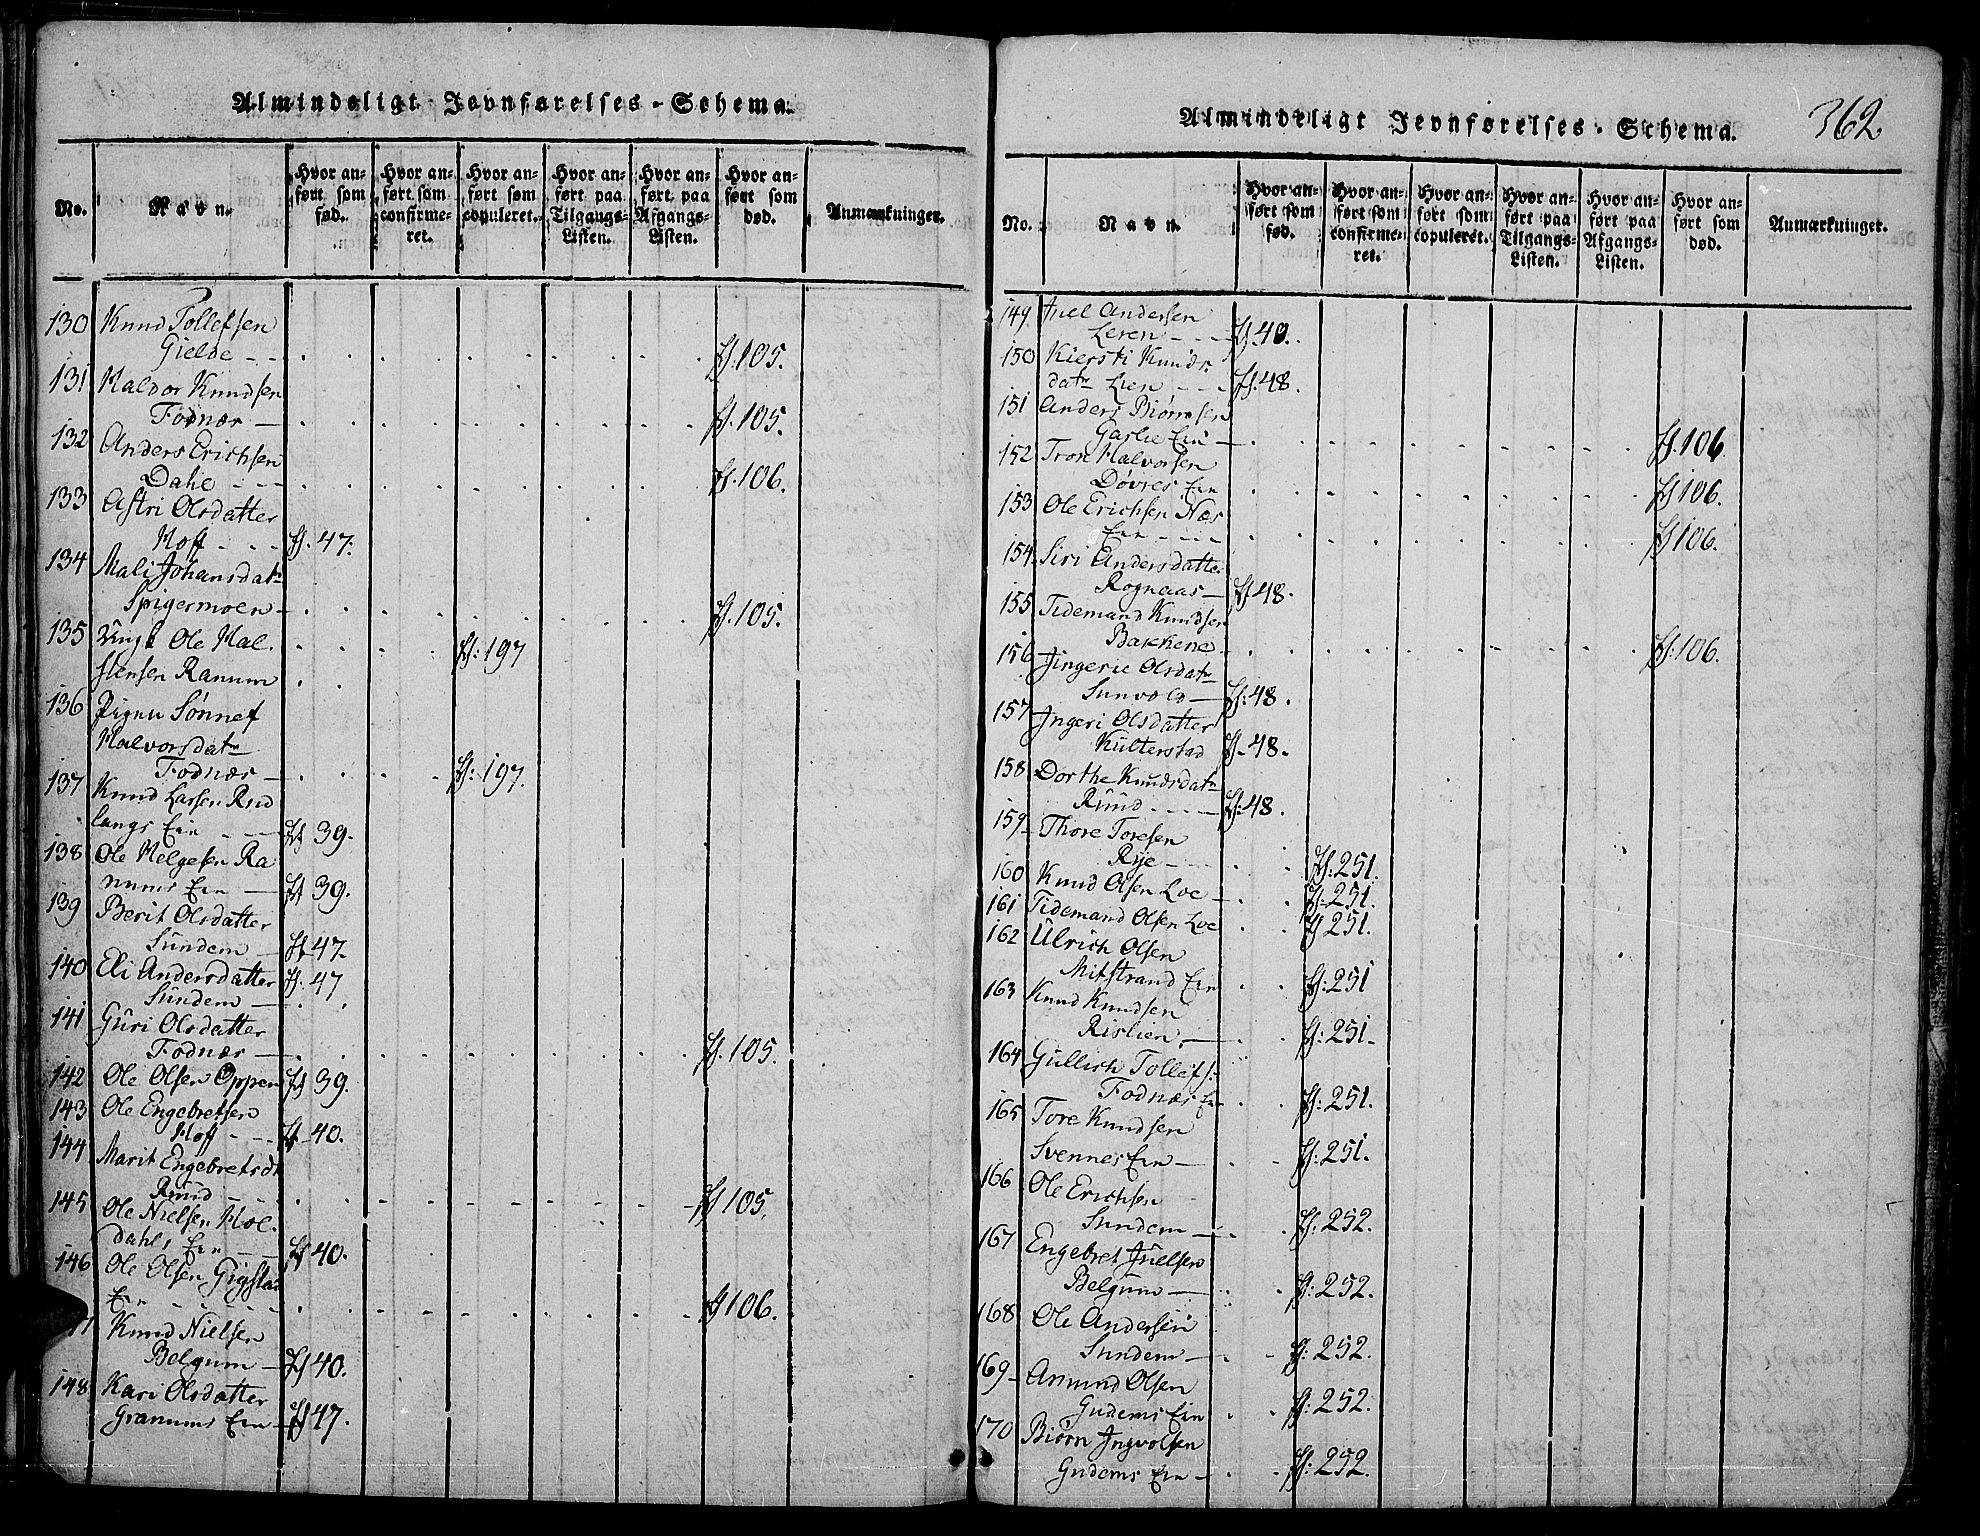 Almindeligt Jevnførelses-Schema.
No.
Navn.
Hvor anført som fød.
Hvor anført som confirmeret.
Hvor anført som copuleret.
Hvor anført paa Tilgangs-Listen.
Hvor anført paa Afgangs-Listen.
Hvor anført som død.
Anmærkninger.
130 Knud Tollefsen
Gielde - - fl. 105.
131 Haldor Knudsen
Fodnæs - fl. 105.
132 Anders Erichsen
Dahe - - - fl. 106.
133 Astri Olsdatter
Hoff - - - fl. 47.
134 Mali Johansdatr
Spigermoen - fl. 105.
135 Ungk Ole Hal-
stensen Ranum fl: 197
136 Pigen Sønnef
Halvorsdatr
Fodnæs - fl: 197.
137 Knud Larsen Rud
langs Eie - - - fl 39.
138 Ole Helgesen Ra
nums Eie - fl 39.
139 Berit Olsdatter
Sundem - fl 47.
140 Eli Andersdatter fl: 47
Sundem -
141 Guri Olsdatter
Fodnæs - fl. 105.
142 Ole Olsen Oppen fl 39.
143 Ole Engebretsen
Hoff - - - fl 40.
144 Marit Engebretsdt
Ruud - - - fl 105.
145 Ole Nielsen Hoe-
dahls Eie - - fl 40.
146 Ole Olsen Gigstad
Eie - - - - fl 106.
Knud Nielsen
Belgum - fl 40.
148 Kari Olsdatter
Granums Eie - fl 47.
Almindeligt Jevnførelses-Schema.
362
No.
Navn.
Hvor anført som fød.
Hvor anført som confirmeret.
Hvor anført som copuleret.
Hvor anført paa Tilgangs-Listen.
Hvor anført paa Afgangs-Listen.
Hvor anført som død.
Anmærkninger.
149 Juel Andersen
Leren - - - fl 40.
150 Kiersti Knuds
datr Lien - - - fl. 48.
151 Anders Biørnsen
Garlie Eie - fl. 106
152 Tron Halvorsen
Døvres Eie fl 106.
153 Ole Erichsen Næs
Eie - - - - fl 106.
154. Siri Andersdatter
Rognaas - fl 48.
155 Tidemand Knudsen
Bakkene - fl. 106.
156 Jingerie Olsdatr
Sunvold - fl: 48.
157 Ingeri Olsdatter
Kulterstad fl. 48.
158 Dorthe Knudsdatr
Ruud - - - - fl: 48.
159 Thore Toresen
Rye - - - fl. 251.
160 Knud Olsen Loe - fl. 251.
161 Tidemand Olsen Loe fl 251.
162 Ulrich Olsen
Mitstrand Eie fl: 251
163 Knud Knudsen
Rislien. - fl: 251.
164 Gullich Tollefs:
Fodnæs Eie fl: 251.
165 Tore Knudsen
Svennes Eie - fl: 251.
166 Ole Erichsen
Sundem - fl. 252.
167 Engebret Juelsen
Belgum - fl: 252.
168 Ole Andersen
Sundem - fl: 252.
169 Amund Olsen
Gudems Eie fl: 252.
170 Biørn Ingvolsen
Gudems Eie - fl: 252.